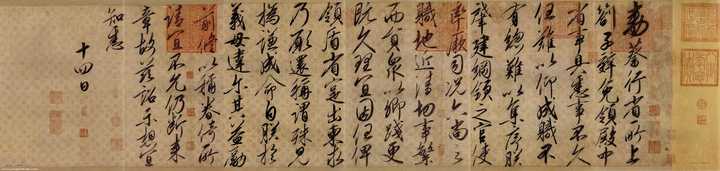 勅蔡行省所上
劄子辭免領殿中
省事具悉事不久
任難以仰成職不
有總難以集序朕
肇建綱領之官使
率厥司況六尚之
職地近清切事繁
而員衆以卿踐更
既久理宜因任俾
領盾省寔出柬求
乃願還稱謂殊見
撝謙成命自朕於
義毋違尔其益勵
前修以稱眷倚所
請宜不允仍斷來
章故茲詔示想宜
知悉
十四日